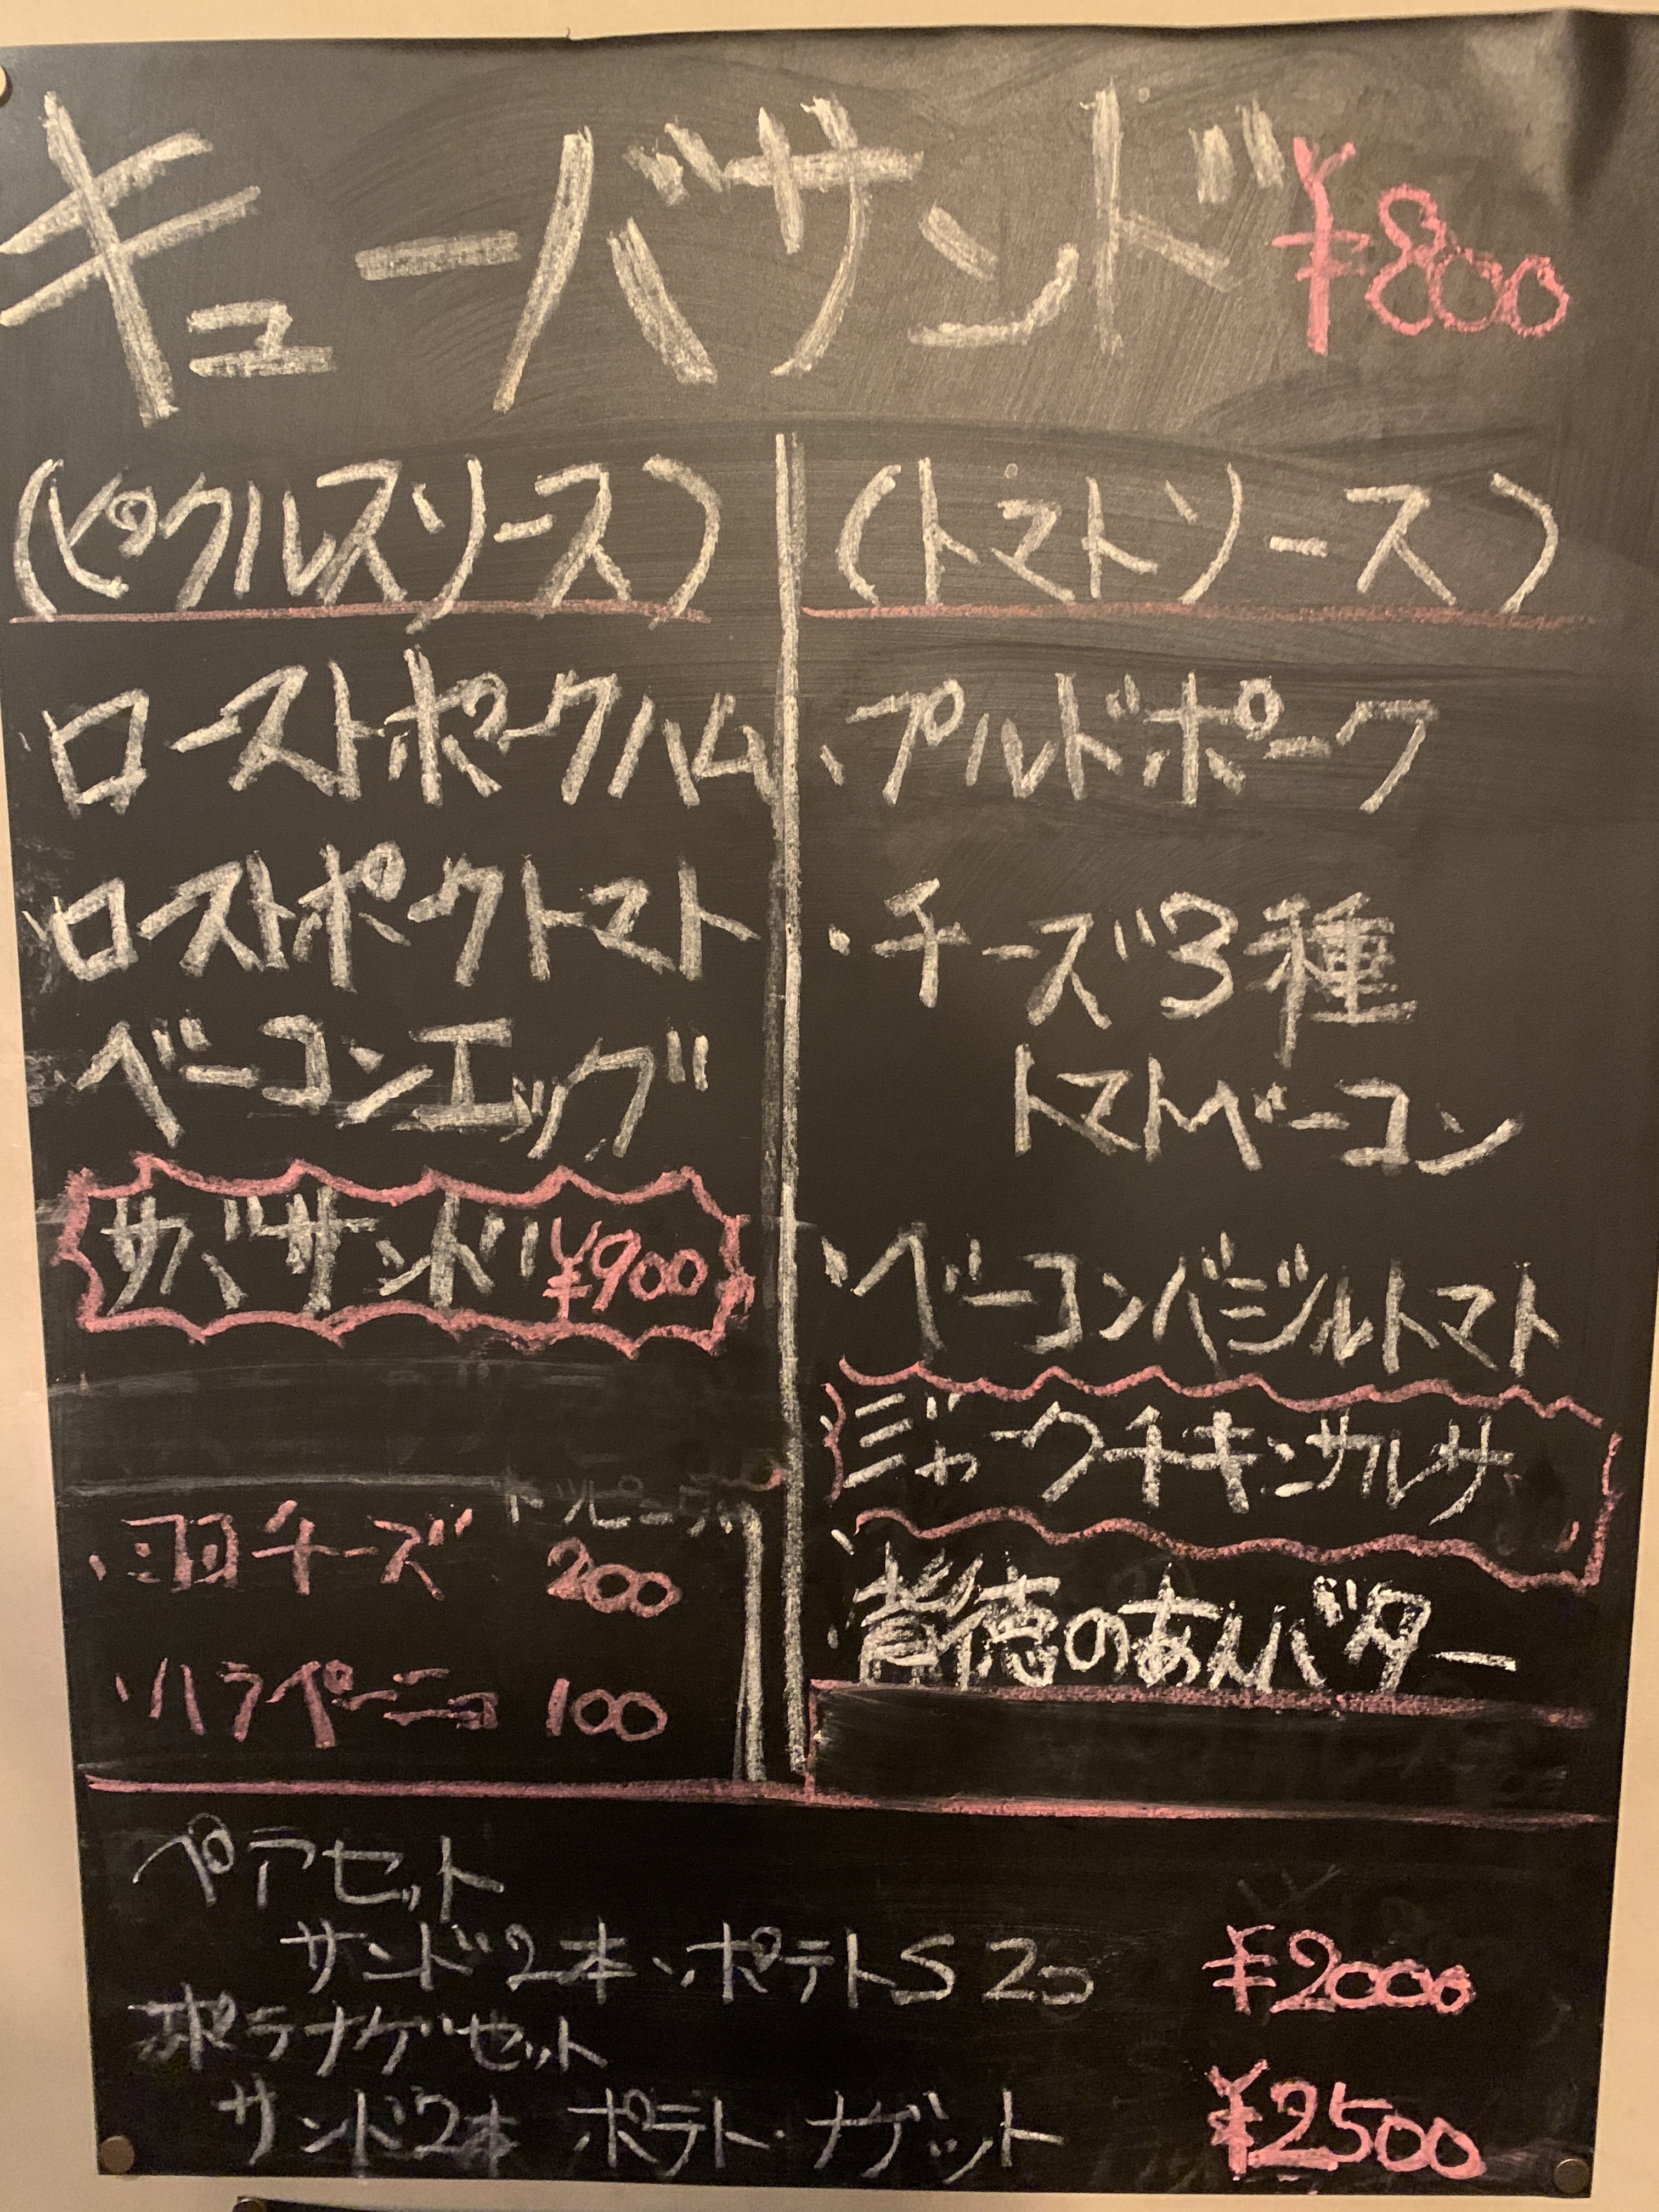 キューバサンド ¥800
(ピックルスソース)
・ローストポークハム
・ローストポークトマト
・ベーコンエッグ
サバサンド ¥900
トッピング
・羽チーズ 200
・ハラペーニョ 100
(トマトソース)
・プルドポーク
・チーズ3種
トマトベーコン
・ベーコンバジルトマト
・ジャークチキンサルサ
・背徳のあんバター
ペアセット
サンド2本・ポテトS 2コ ¥2000
ポテナゲセット
サンド2本 ポテト・ナゲット ¥2500